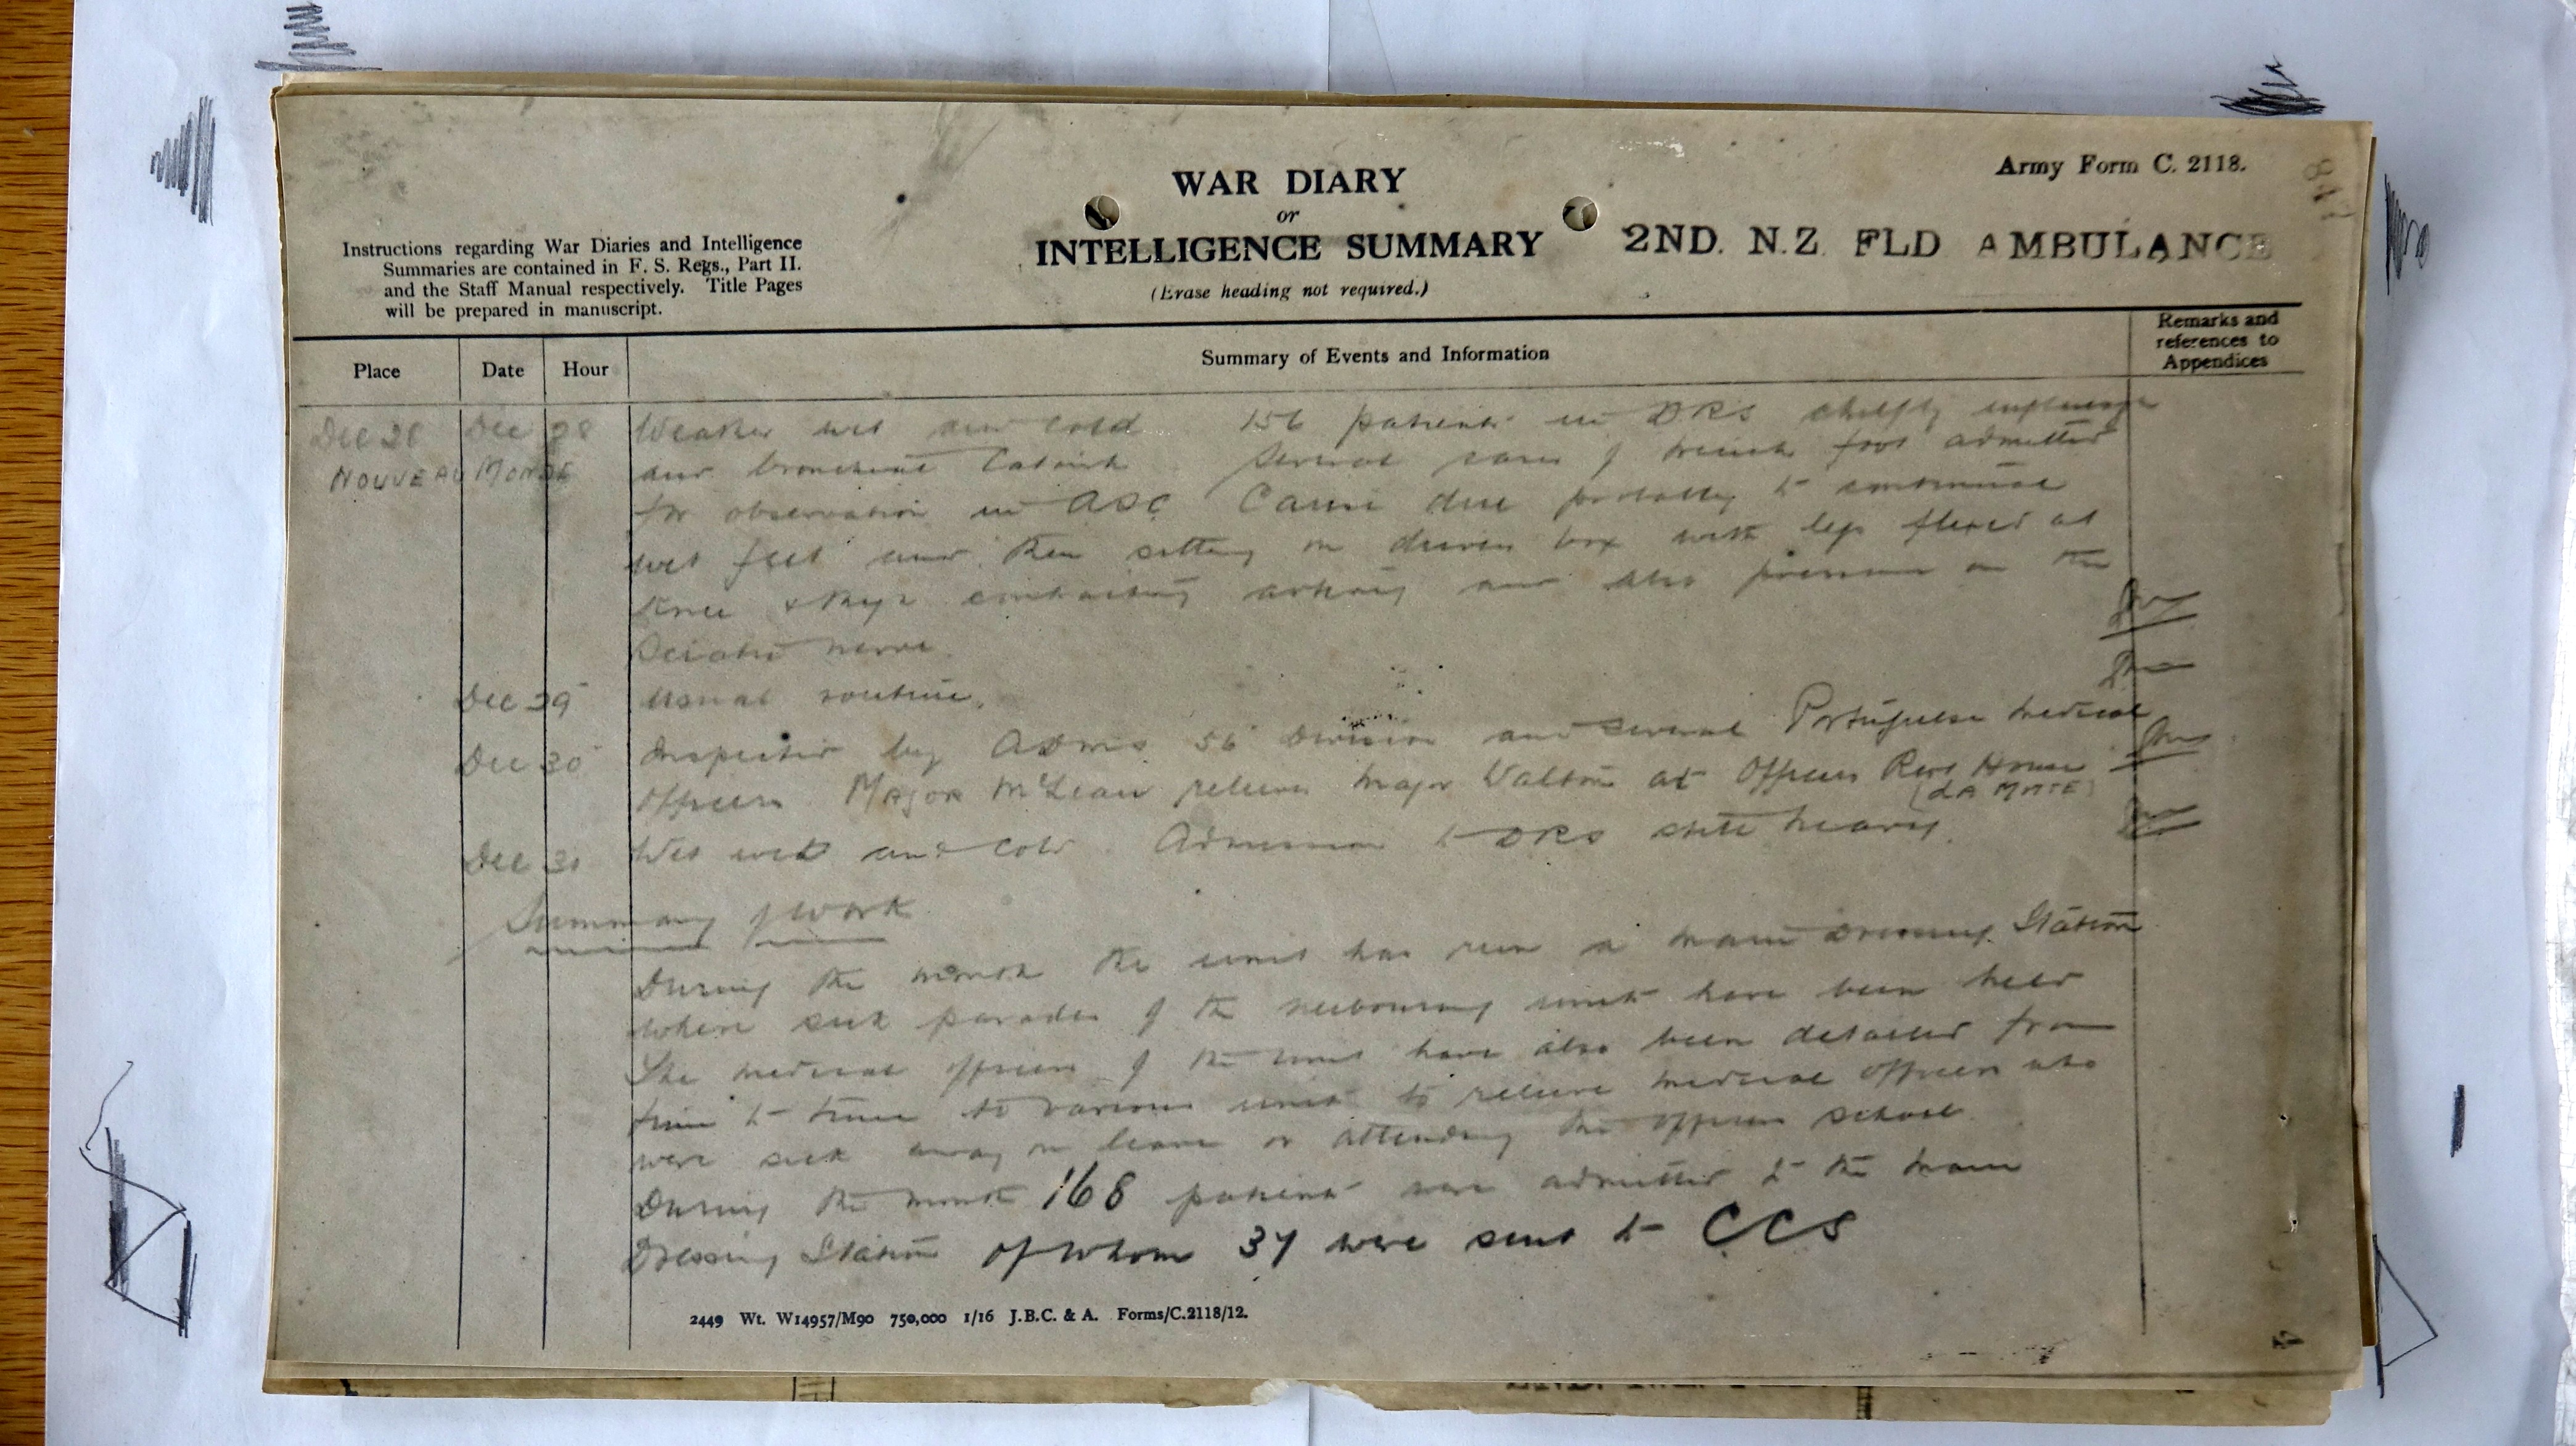 Army Form C. 2118.
WAR DIARY
or
INTELLIGENCE SUMMARY
(Erase heading not required.)
2ND. N.Z. FLD AMBULANCE
Instructions regarding War Diaries and Intelligence
Summaries are contained in F. S. Regs., Part II.
and the Staff Manual respectively. Title Pages
will be prepared in manuscript.
Place Date Hour Summary of Events and Information Remarks and references to Appendices
Dec 28 Dec 28 Weather wet and cold 156 patients in DRS chiefly influenza
NOUVEAU MONDE and bronchial Catarrh Several cases of trench foot admitted
for observation in ASC Cause due probably to continual
wet feet and then sitting on drivers box with legs flexed at
knee & thighs contracting artery and also pressure on the
Sciatic nerve.
Dec 29 Usual routine.
Dec 30 Inspection by ADMS 56 Division and several Portuguese medical
officers Major McLean relieves Major Walton at Officers Rest House
(LA MOTTE)
Dec 31 Wet and cold. Admission to DRS still heavy.
Summary of work
During the month the unit has run a main Dressing Station
where sick parades of the neibouring units have been held
The medical officers of the unit have also been detailed from
time to time to various units to relieve medical officers who
were sick away on leave or attending the officers school.
During the month 168 patients were admitted to the main
Dressing Station of whom 37 were sent to CCS
2449 Wt. W14957/M90 750,000 1/16 J.B.C. & A. Forms/C.2118/12.